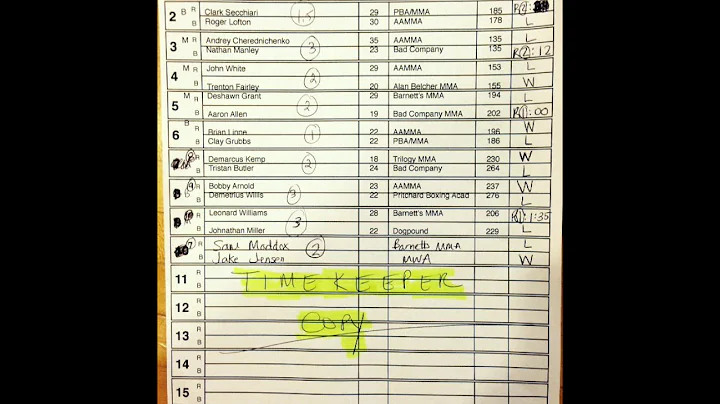 2 B R Clark Secchiari 1.5 29 PBA/MMA 185 R(4):
B Roger Lofton 30 AAMMA 178 L
3 M R Andrey Cherednichenko 3 35 AAMMA 135 L
B Nathan Manley 23 Bad Company 135 R(2):12
4 M R John White 2 29 AAMMA 153 L
B Trenton Fairley 20 Alan Belcher MMA 155 W
5 M R Deshawn Grant 2 29 Barnett's MMA 194 L
B Aaron Allen 19 Bad Company MMA 202 R(1):00
6 B R Brian Linne 1 22 AAMMA 196 W
B Clay Grubbs 22 PBA/MMA 186 L
R Demarcus Kemp 2 18 Trilogy MMA 230 W
B Tristan Butler 24 Bad Company 264 L
9 R Bobby Arnold 3 23 AAMMA 237 W
B Demetrius Willis 22 Pritchard Boxing Acad 276 L
10 R Leonard Williams 3 28 Barnett's MMA 206 R(1):1:35
B Johnathan Miller 22 Dogpound 229 L
7 R Sam Maddox 2 Barnetts MMA L
B Jake Jensen MWA W
11 R TIME KEEPER
B
12 R COPY
B
13 R
B
14 R
B
15 R
B